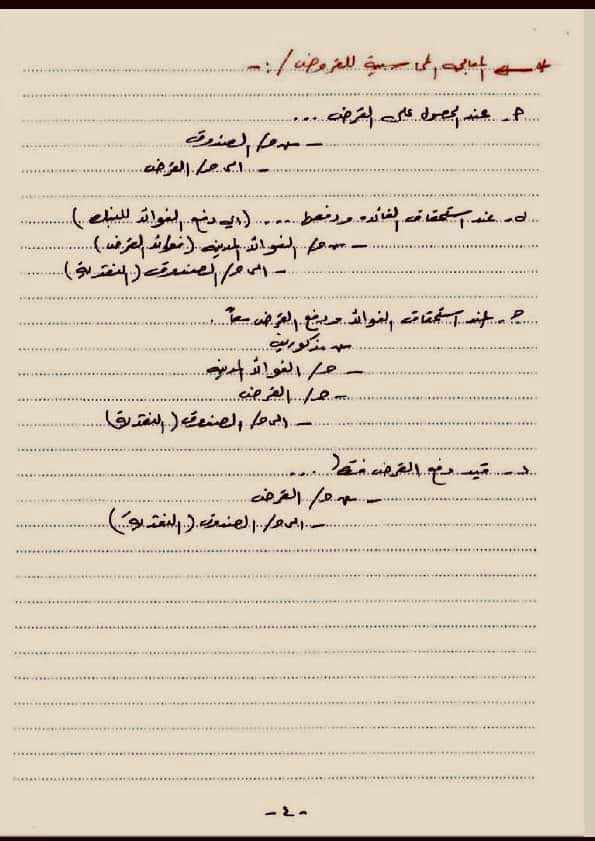 * ــ المعالجة المحاسبية للقروض /:-
أ- عند الحصول على القرض ...
- من حـ/ الصندوق
- الى حـ/ القرض
ب- عند استحقاق الفائده ودفعها ... (اي دفع الفوائد للبنك)
- من حـ/ الفوائد المدينه (فوائد القرض)
- الى حـ/ الصندوق (النقدية)
ج- عند استحقاق الفوائد ودفع القرض معاً.
من مذكورين
- حـ/ الفوائد المدينه
- حـ/ القرض
- الى حـ/ الصندوق (النقدية)
د- قيد دفع القرض فقط ...
- من حـ/ القرض
- الى حـ/ الصندوق (النقدية)
- ٤ -